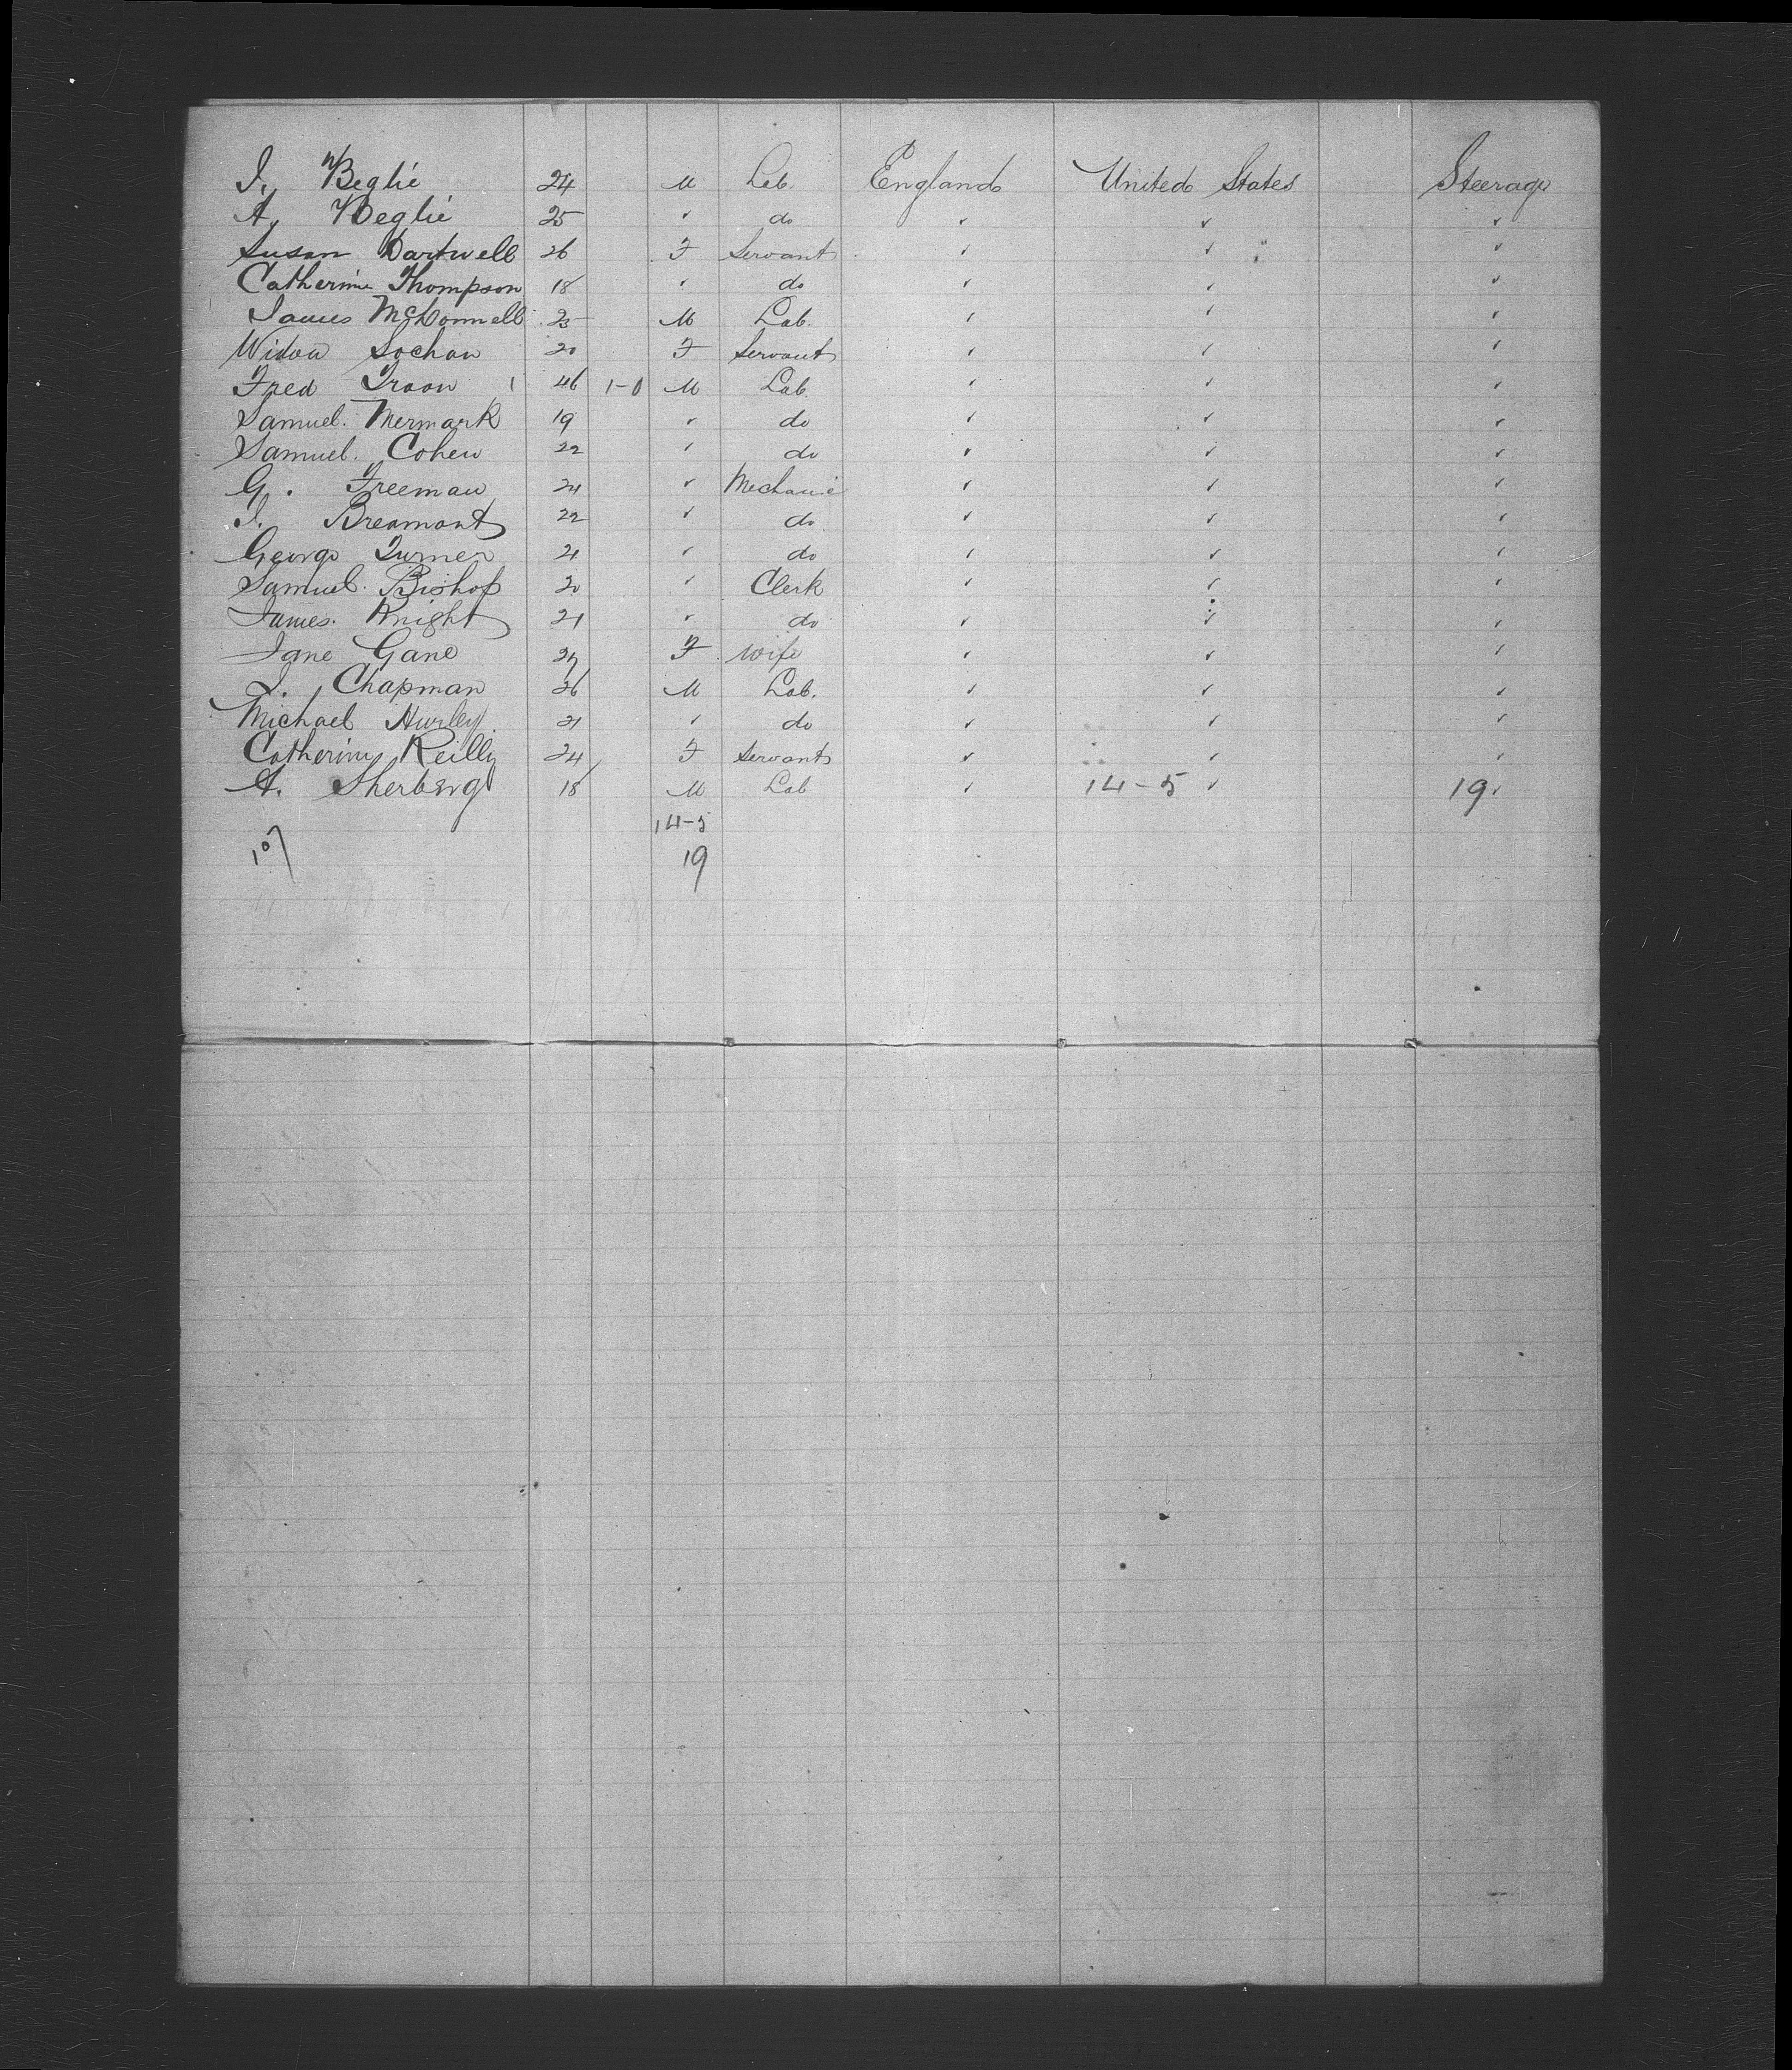 I. Beglie 24 M Lab. England United States Steerage
A. Beglie 25 " do " " "
Susan Dartwell 26 F Servant " " "
Catherine Thompson 18 " do " " "
James McDonnell 25 M Lab. " " "
Widow Sochan 20 F Servant " " "
Fred Troon 1 46 1-0 M Lab. " " "
Samuel. Mermark 19 " do " " "
Samuel. Cohen 22 " do " " "
G. Freeman 24 " Mechanic " " "
I. Breamont 22 " do " " "
George Turner 21 " do " " "
Samuel. Bishop 20 " Clerk " " "
James. Knight 21 " do " " "
Jane Gane 27 F Wife " " "
I. Chapman 26 M Lab. " " "
Michael Hurley 21 " do " " "
Catherine Reilly 24 F Servant " " "
A. Sherberg 18 M Lab " 14-5 " 19 "
14-5
107 19